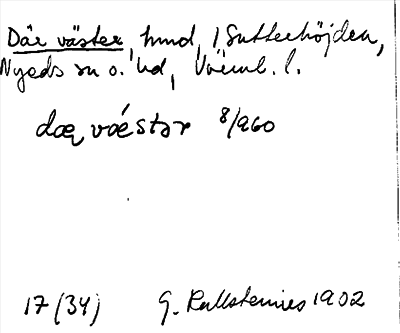 Där väster, hmd, i Sutterhöjden,
Nyeds sn o. hd, Värml. l.
dæ, vǽstər 8/960
17 (34) G. Kallstenius 1902